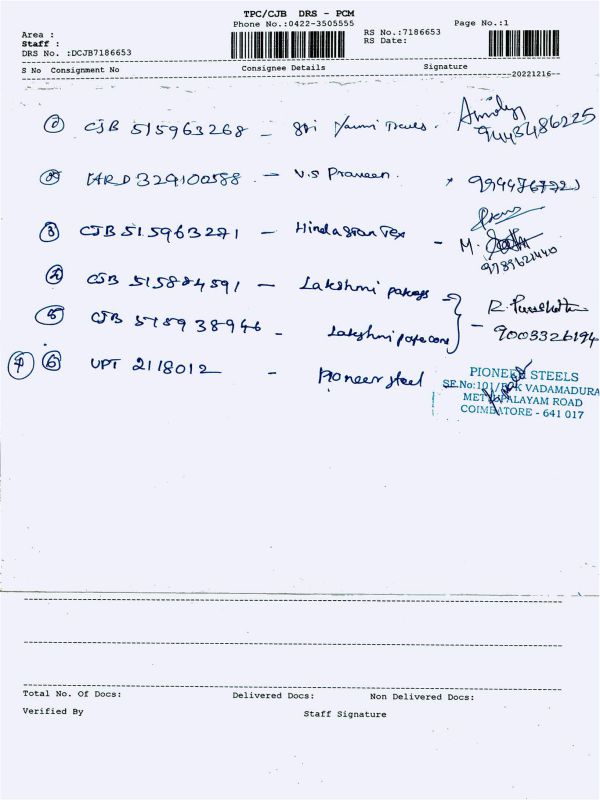 TPC/CJB DRS - PCM
Phone No.:0422-3505555
Page No.:1
Area :
RS No.:7186653
Staff :
RS Date:
DRS No. :DCJB7186653
S No Consignment No Consignee Details Signature
20221216
1 CJB 515963268 - Sri
9443486225
2 329100588 - V.S Praveen.
3 CJB 515963271 - Hindustan Tex
- M.
9789621440
4 CJB 515884591 - Lakshmi
5 CJB 515938946 - Lakshmi
R.
- 9003326194
6 UPT 2118012 - Pioneer steel
PIONEER STEELS
SF.No:101/ VADAMADURA
METTUPALAYAM ROAD
COIMBATORE - 641 017
Total No. Of Docs: Delivered Docs: Non Delivered Docs:
Verified By Staff Signature